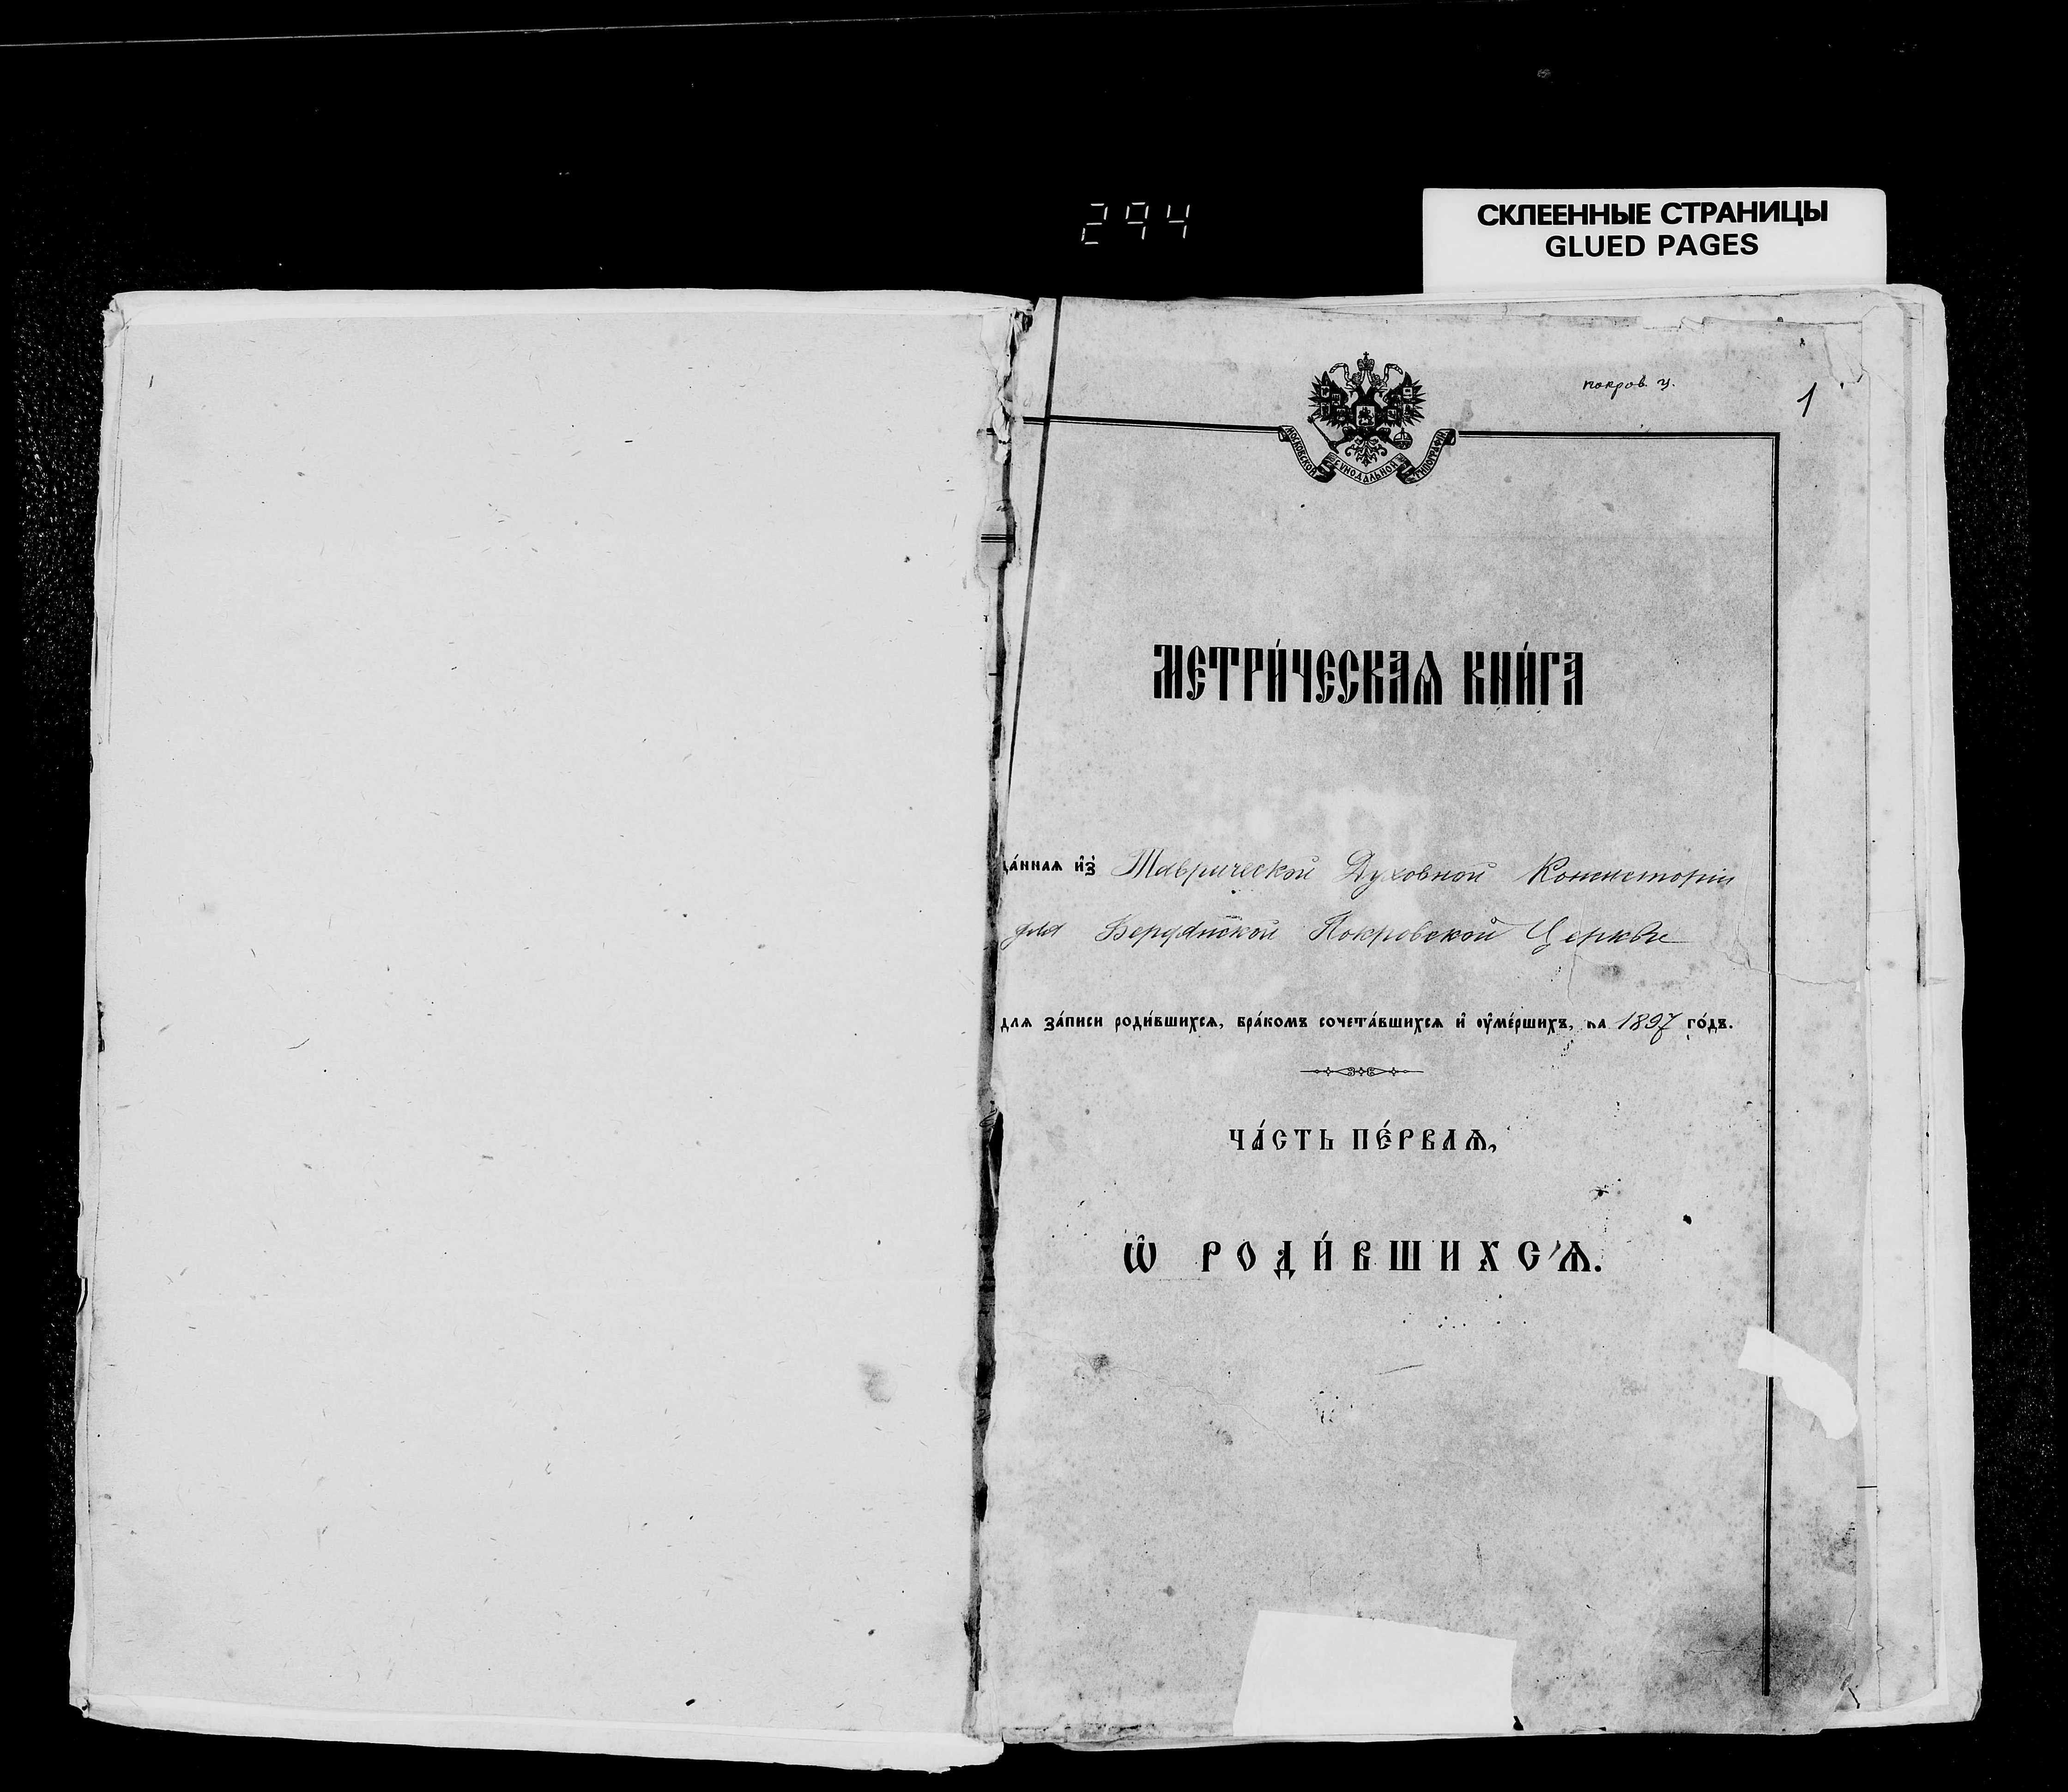 294
СКЛЕЕННЫЕ СТРАНИЦЫ
GLUED PAGES
покров ц.
1
МОСКОВСКОЙ СѴНОДАЛЬНОЙ ТИПОГРАФІИ
МЕТРИ́ЧЕСКАѦ КНИ́ГА
да́ннаѧ и҆з̾ Таврической Духовной Консисторіи
для Бердянской Покровской Церкви
для за́писи роди́вшихсѧ, бра́комъ сочета́вшихсѧ и҆ ᲂу҆ме́ршихъ, на 1897 го́дъ.
ЧА́СТЬ ПЕ́РВАѦ,
Ѡ҆ РОДИ́ВШИХСѦ.